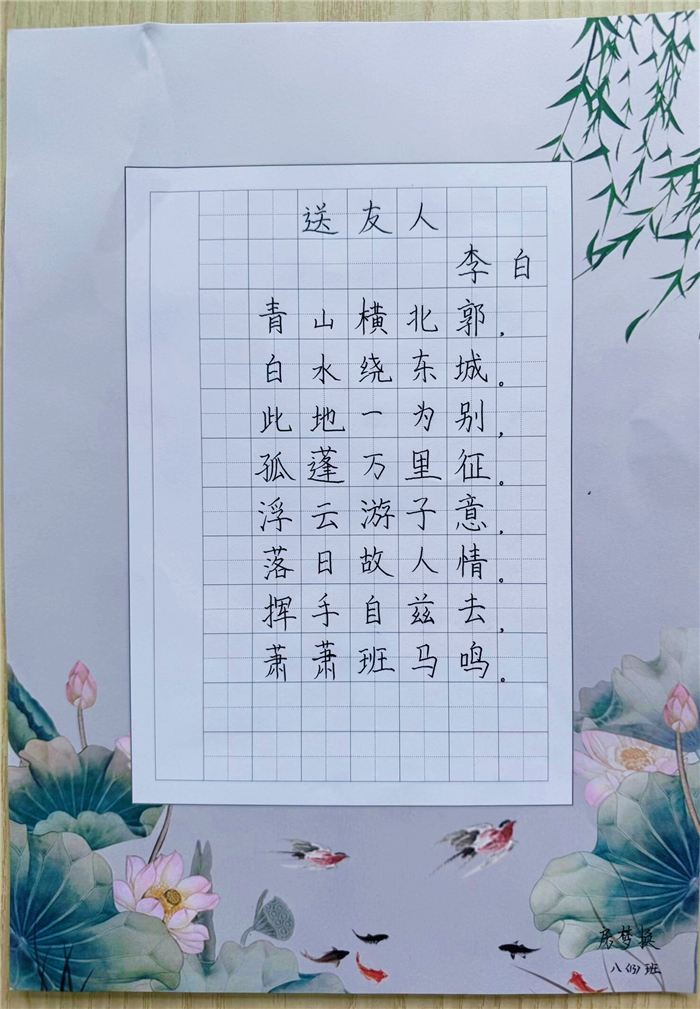 送友人
李白
青山横北郭，
白水绕东城。
此地一为别，
孤蓬万里征。
浮云游子意，
落日故人情。
挥手自兹去，
萧萧班马鸣。
房梦
八（13）班